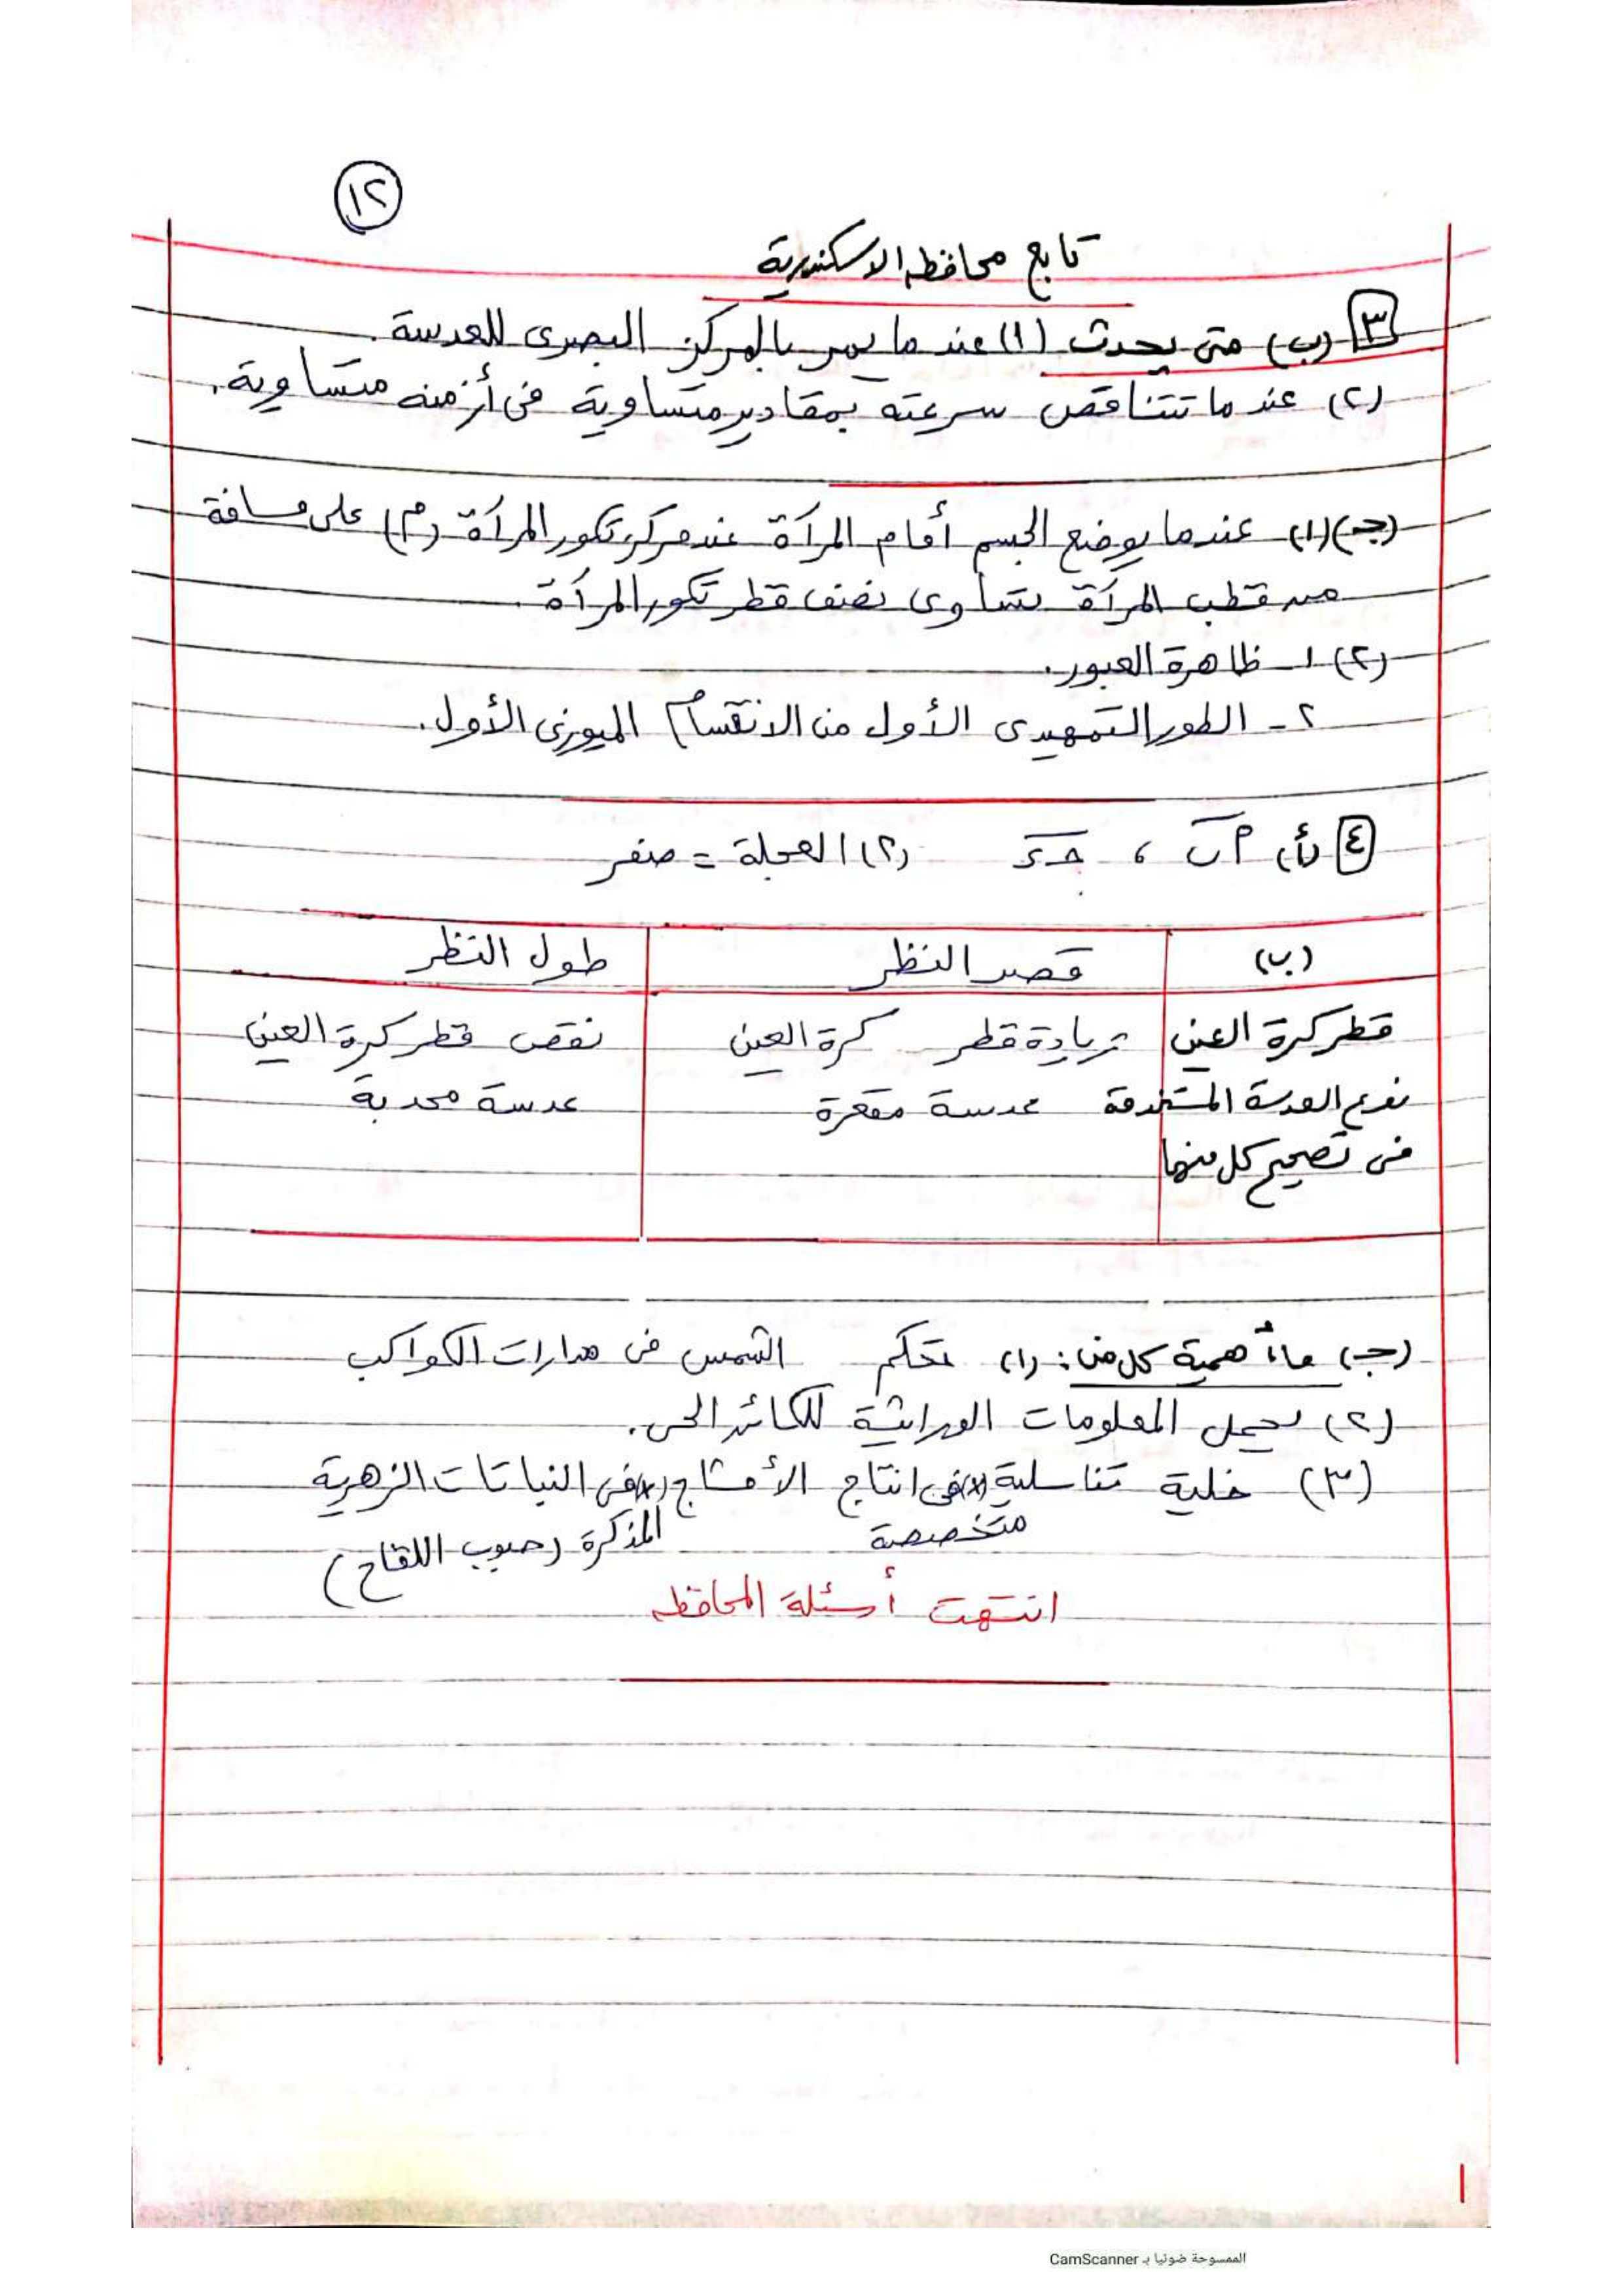 ١٢
تابع محافظه الاسكندرية
٣ (ب) متى يحدث (١) عندما يمر بالمركز البصرى للعدسة.
(٢) عندما تتناقص سرعته بمقادير متساوية فى أزمنه متساوية.
(جـ) (١) عندما يوضع الجسم أمام المرآة عند مركز تكور المرآة (م) على مسافة
من قطب المرآة تساوى نصف قطر تكور المرآة.
(٢) ١ ـ ظاهرة العبور.
٢ ـ الطور التمهيدى الأول من الانقسام الميوزى الأول.
٤ (أ) أ ب ، جـ د (٢) العجلة = صفر
(ب) قصر النظر طول النظر
قطر كرة العين زيادة قطر كرة العين نقص قطر كرة العين
نوع العدسة المستخدمة عدسة مقعرة عدسة محدبة
فى تصحيح كل منهما
(جـ) ما أهمية كل من : (١) تحكم الشمس فى مدارات الكواكب
(٢) يحمل المعلومات الوراثية للكائن الحى.
(٣) خلية تناسلية (x) فى انتاج الأمشاج (x) فى النباتات الزهرية
متخصصة المذكرة (حبوب اللقاح)
انتهت أسئلة المحافظه
الممسوحة ضوئيا بـ CamScanner